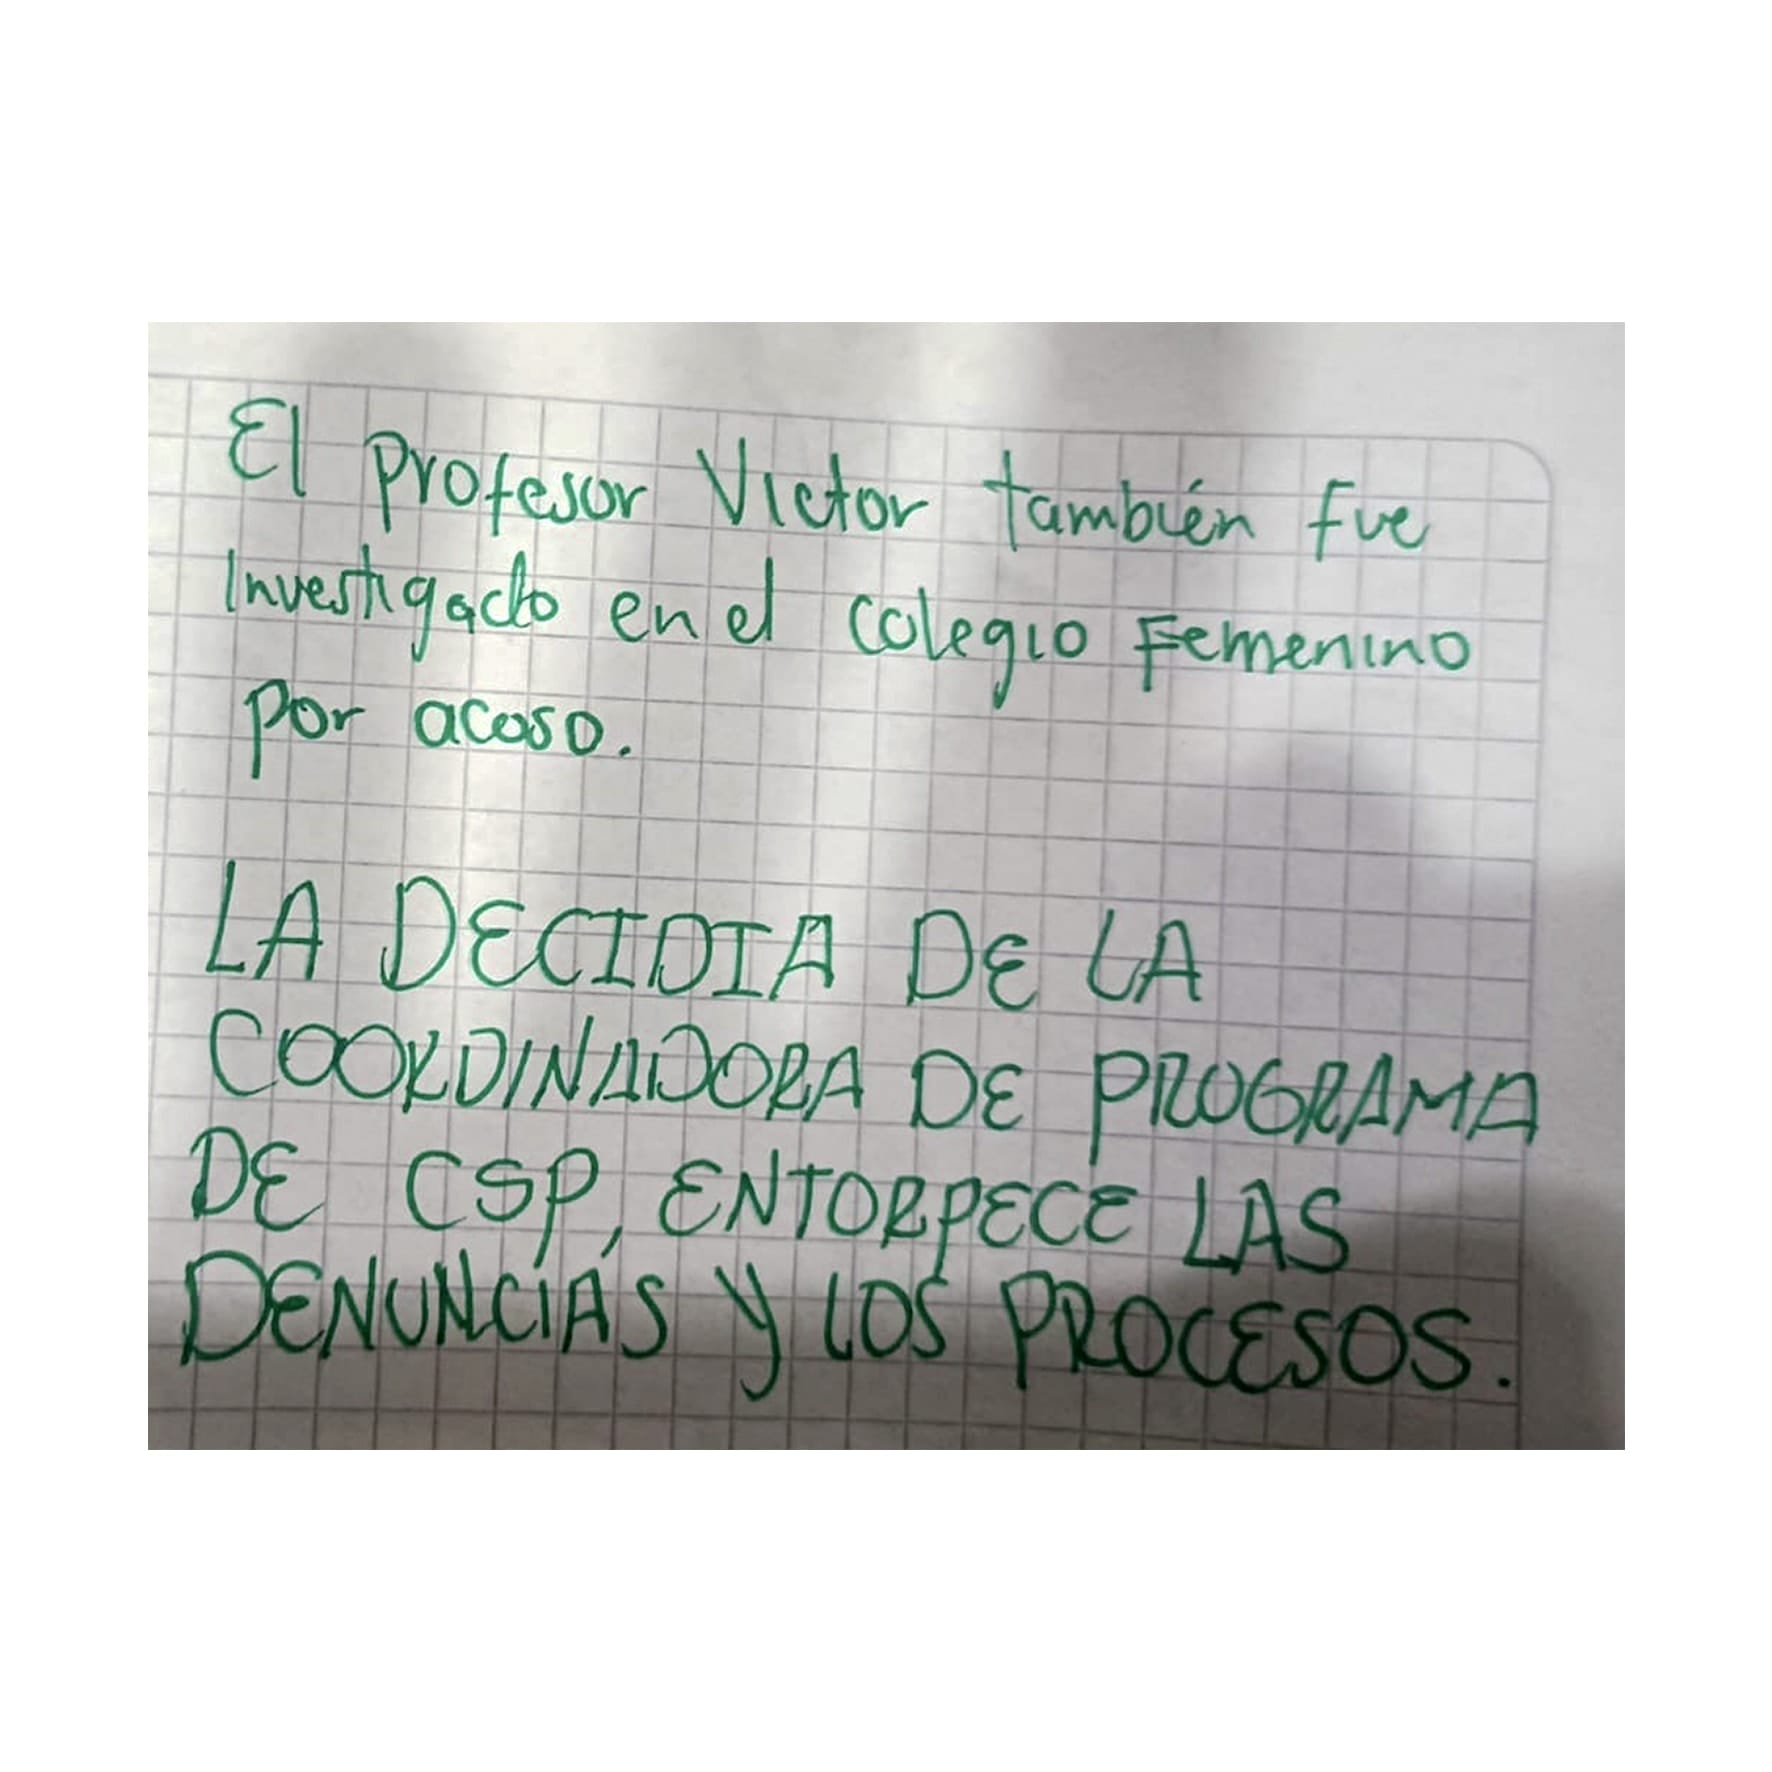 El profesor Victor también fue
investigado en el colegio Femenino
por acoso.
LA DECIDIA DE LA
COORDINADORA DE PROGRAMA
DE CSP, ENTORPECE LAS
DENUNCIAS Y LOS PROCESOS.